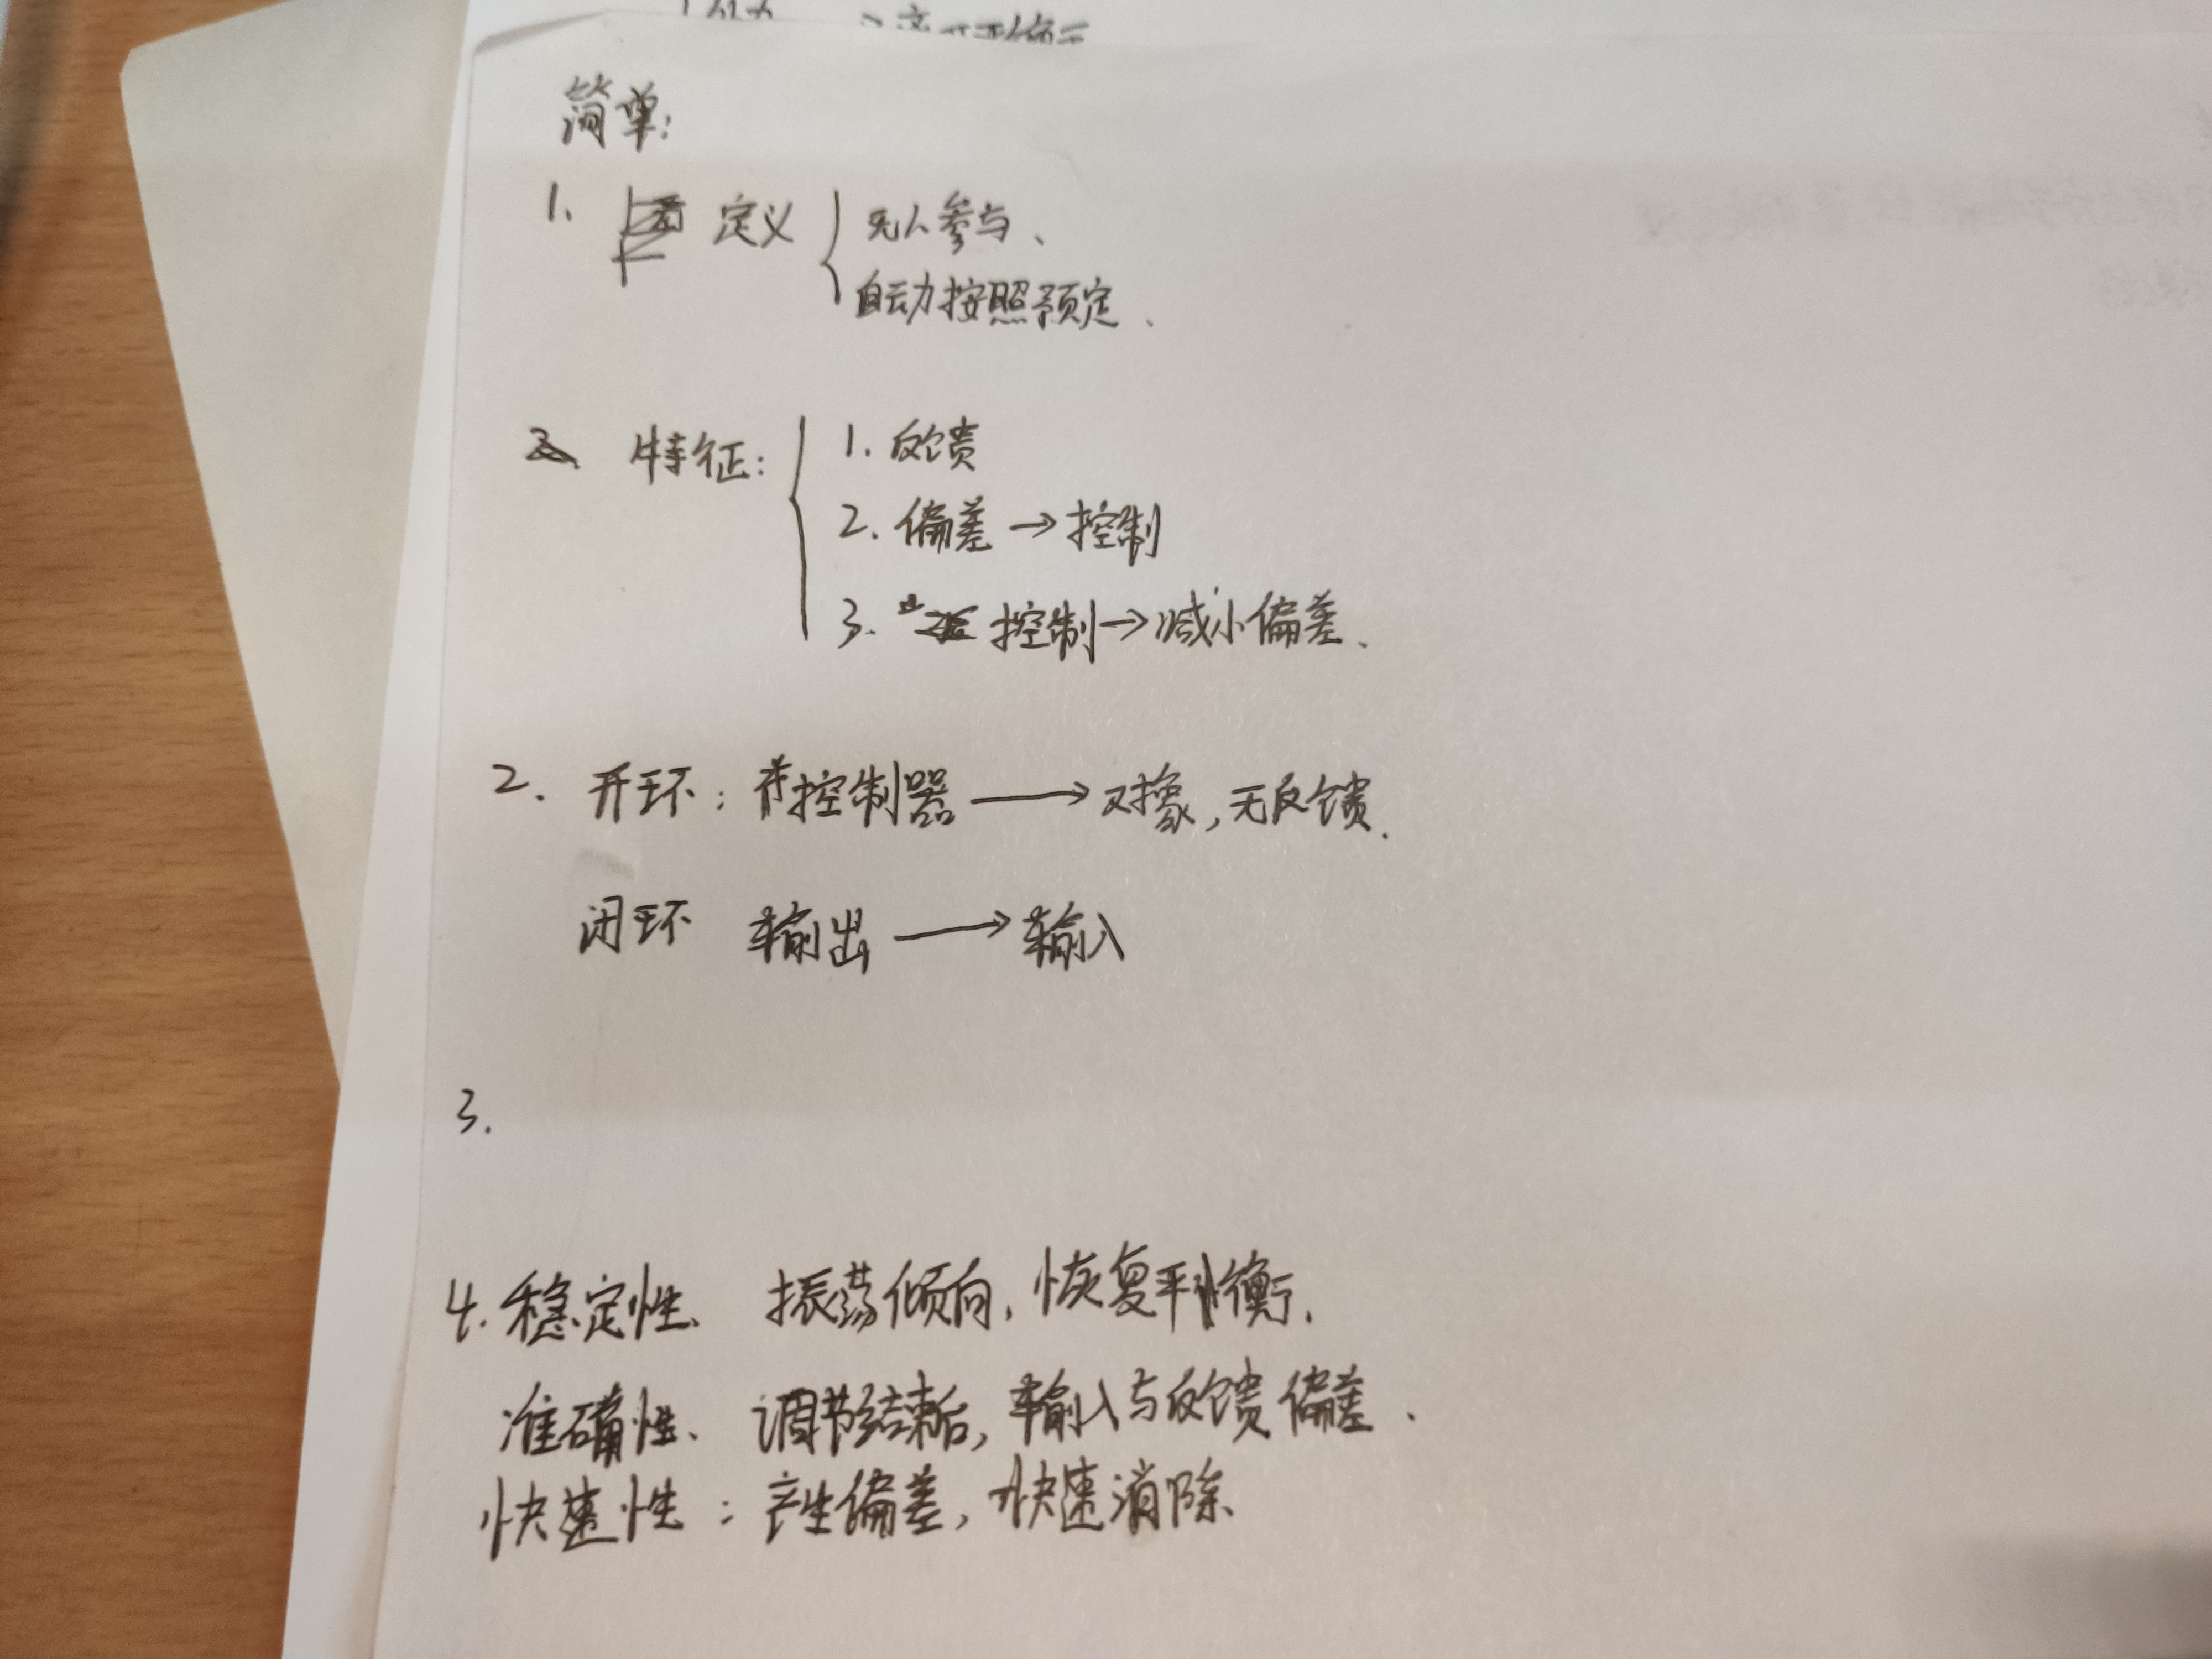 简单：
1. 定义 { 无人参与、
自动按照预定、
特征： { 1. 反馈
2. 偏差 → 控制
3. 控制 → 减小偏差、
2. 开环：控制器 → 对象，无反馈.
闭环 输出 → 输入
3.
4. 稳定性、 振荡倾向，恢复平衡.
准确性、 调节结束后，输入与反馈偏差.
快速性：产生偏差，快速消除